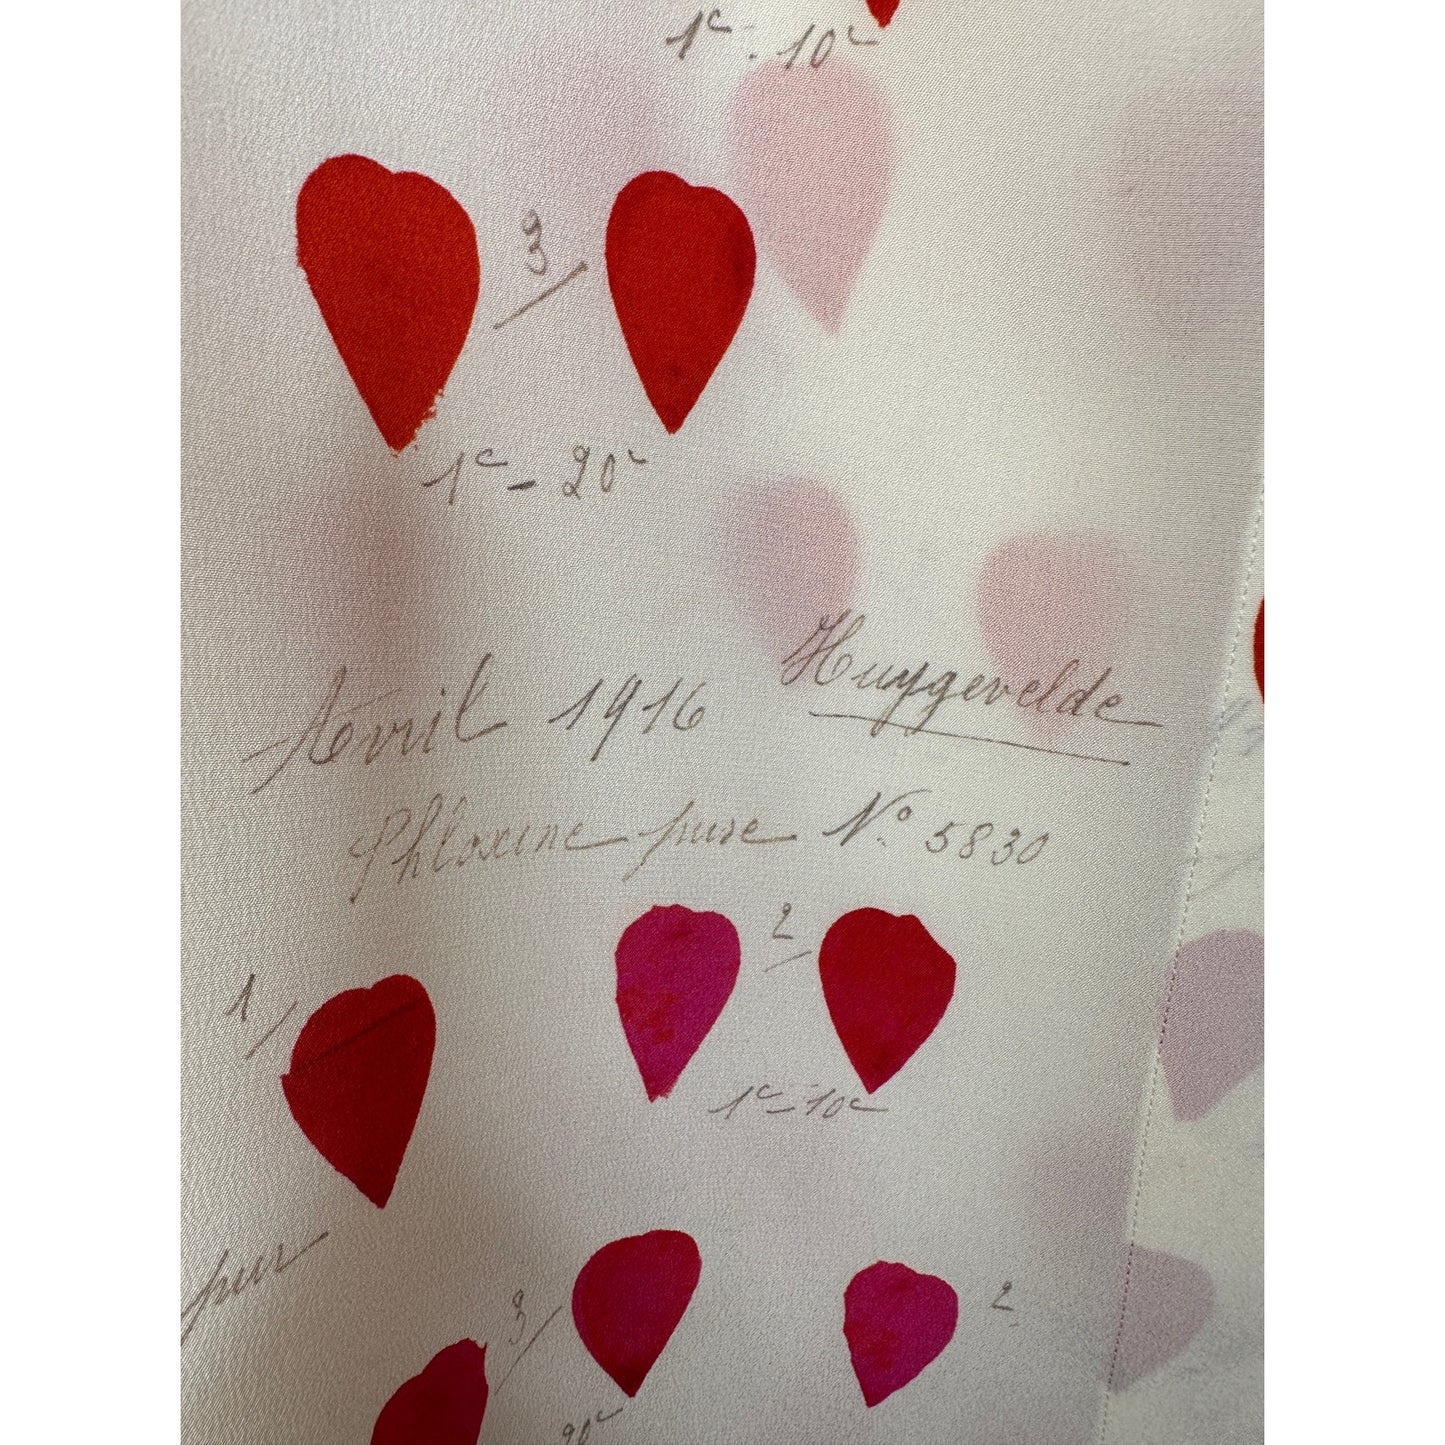 1c - 10c
3/
1c - 20c
Avril 1916 Huygevelde
Phloxine pure No 5830
1/
2/
1c - 10c
pur
3/
2
20c